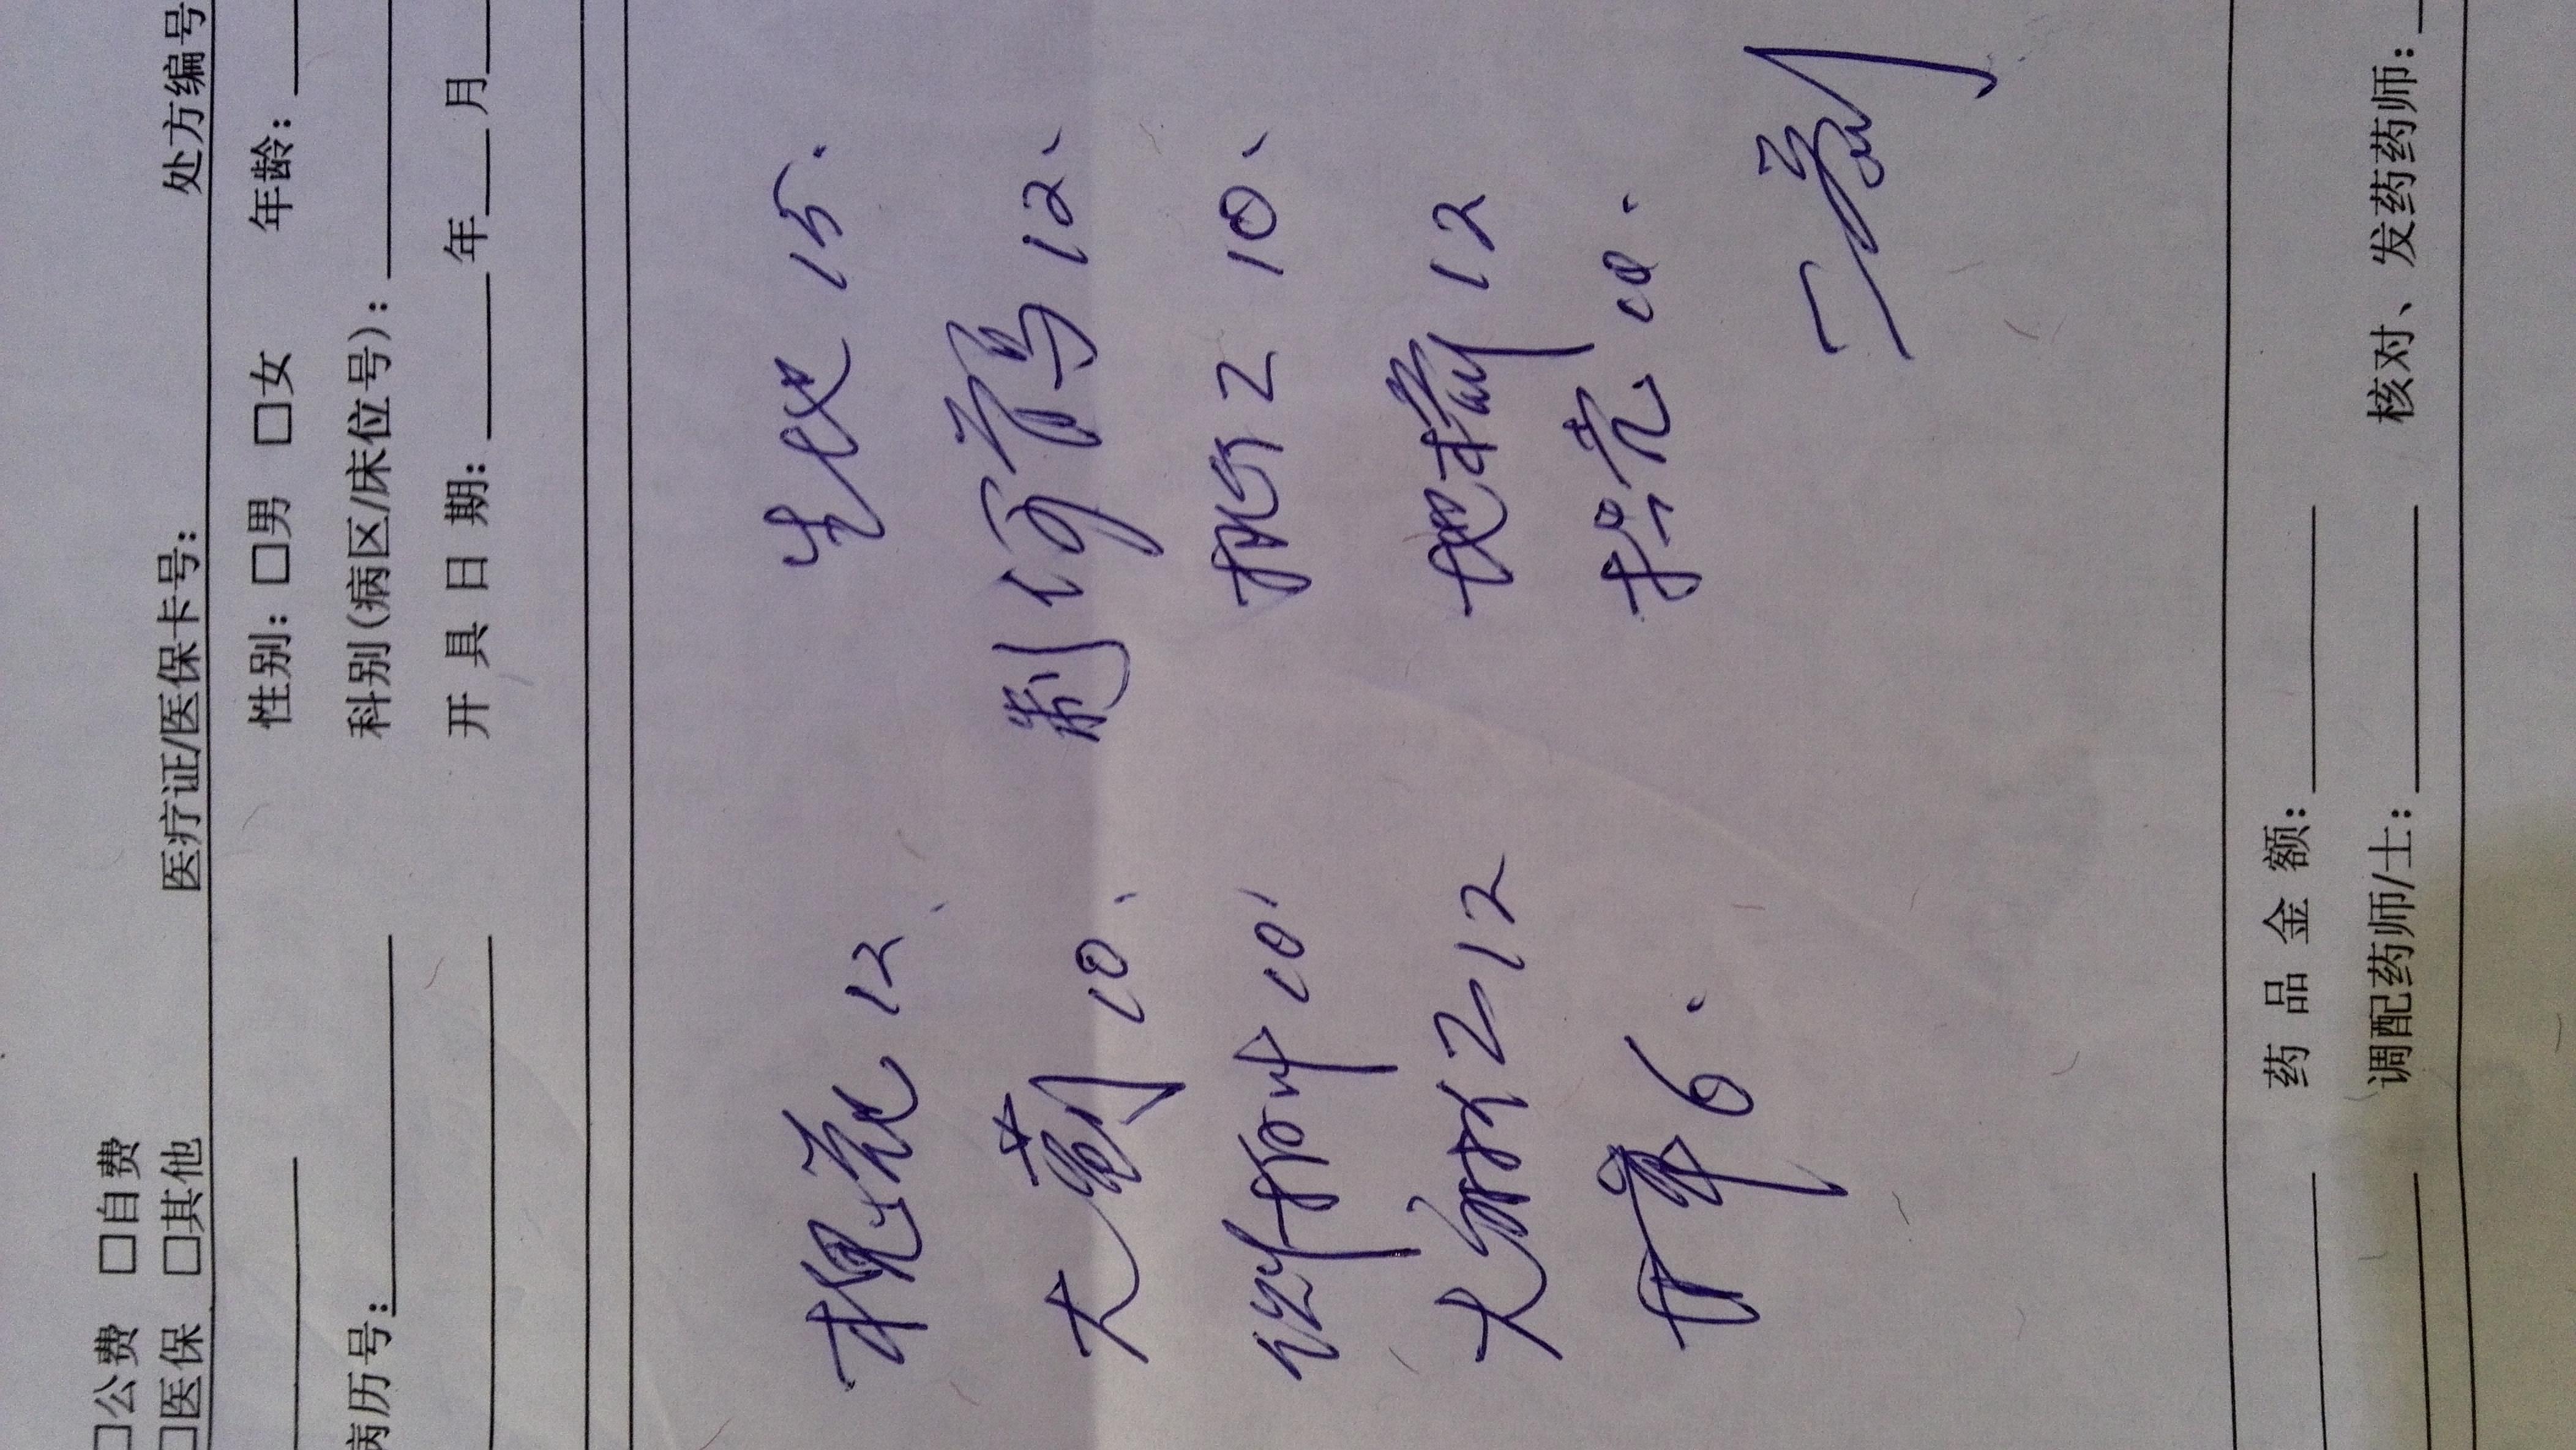 □公费 □自费
□医保 □其他 医疗证/医保卡号: 处方编号
性别: □男 □女 年龄:
病历号: 科别(病区/床位号):
开具日期: 年 月
槐花 12、 生地 15.
大蓟 10、 制何首乌 12、
侧柏叶 10、 枳子 10、
大胡麻 12 地榆 12
甘草 6. 枳壳 10.
二剂
药品金额:
调配药师/士: 核对、发药药师: